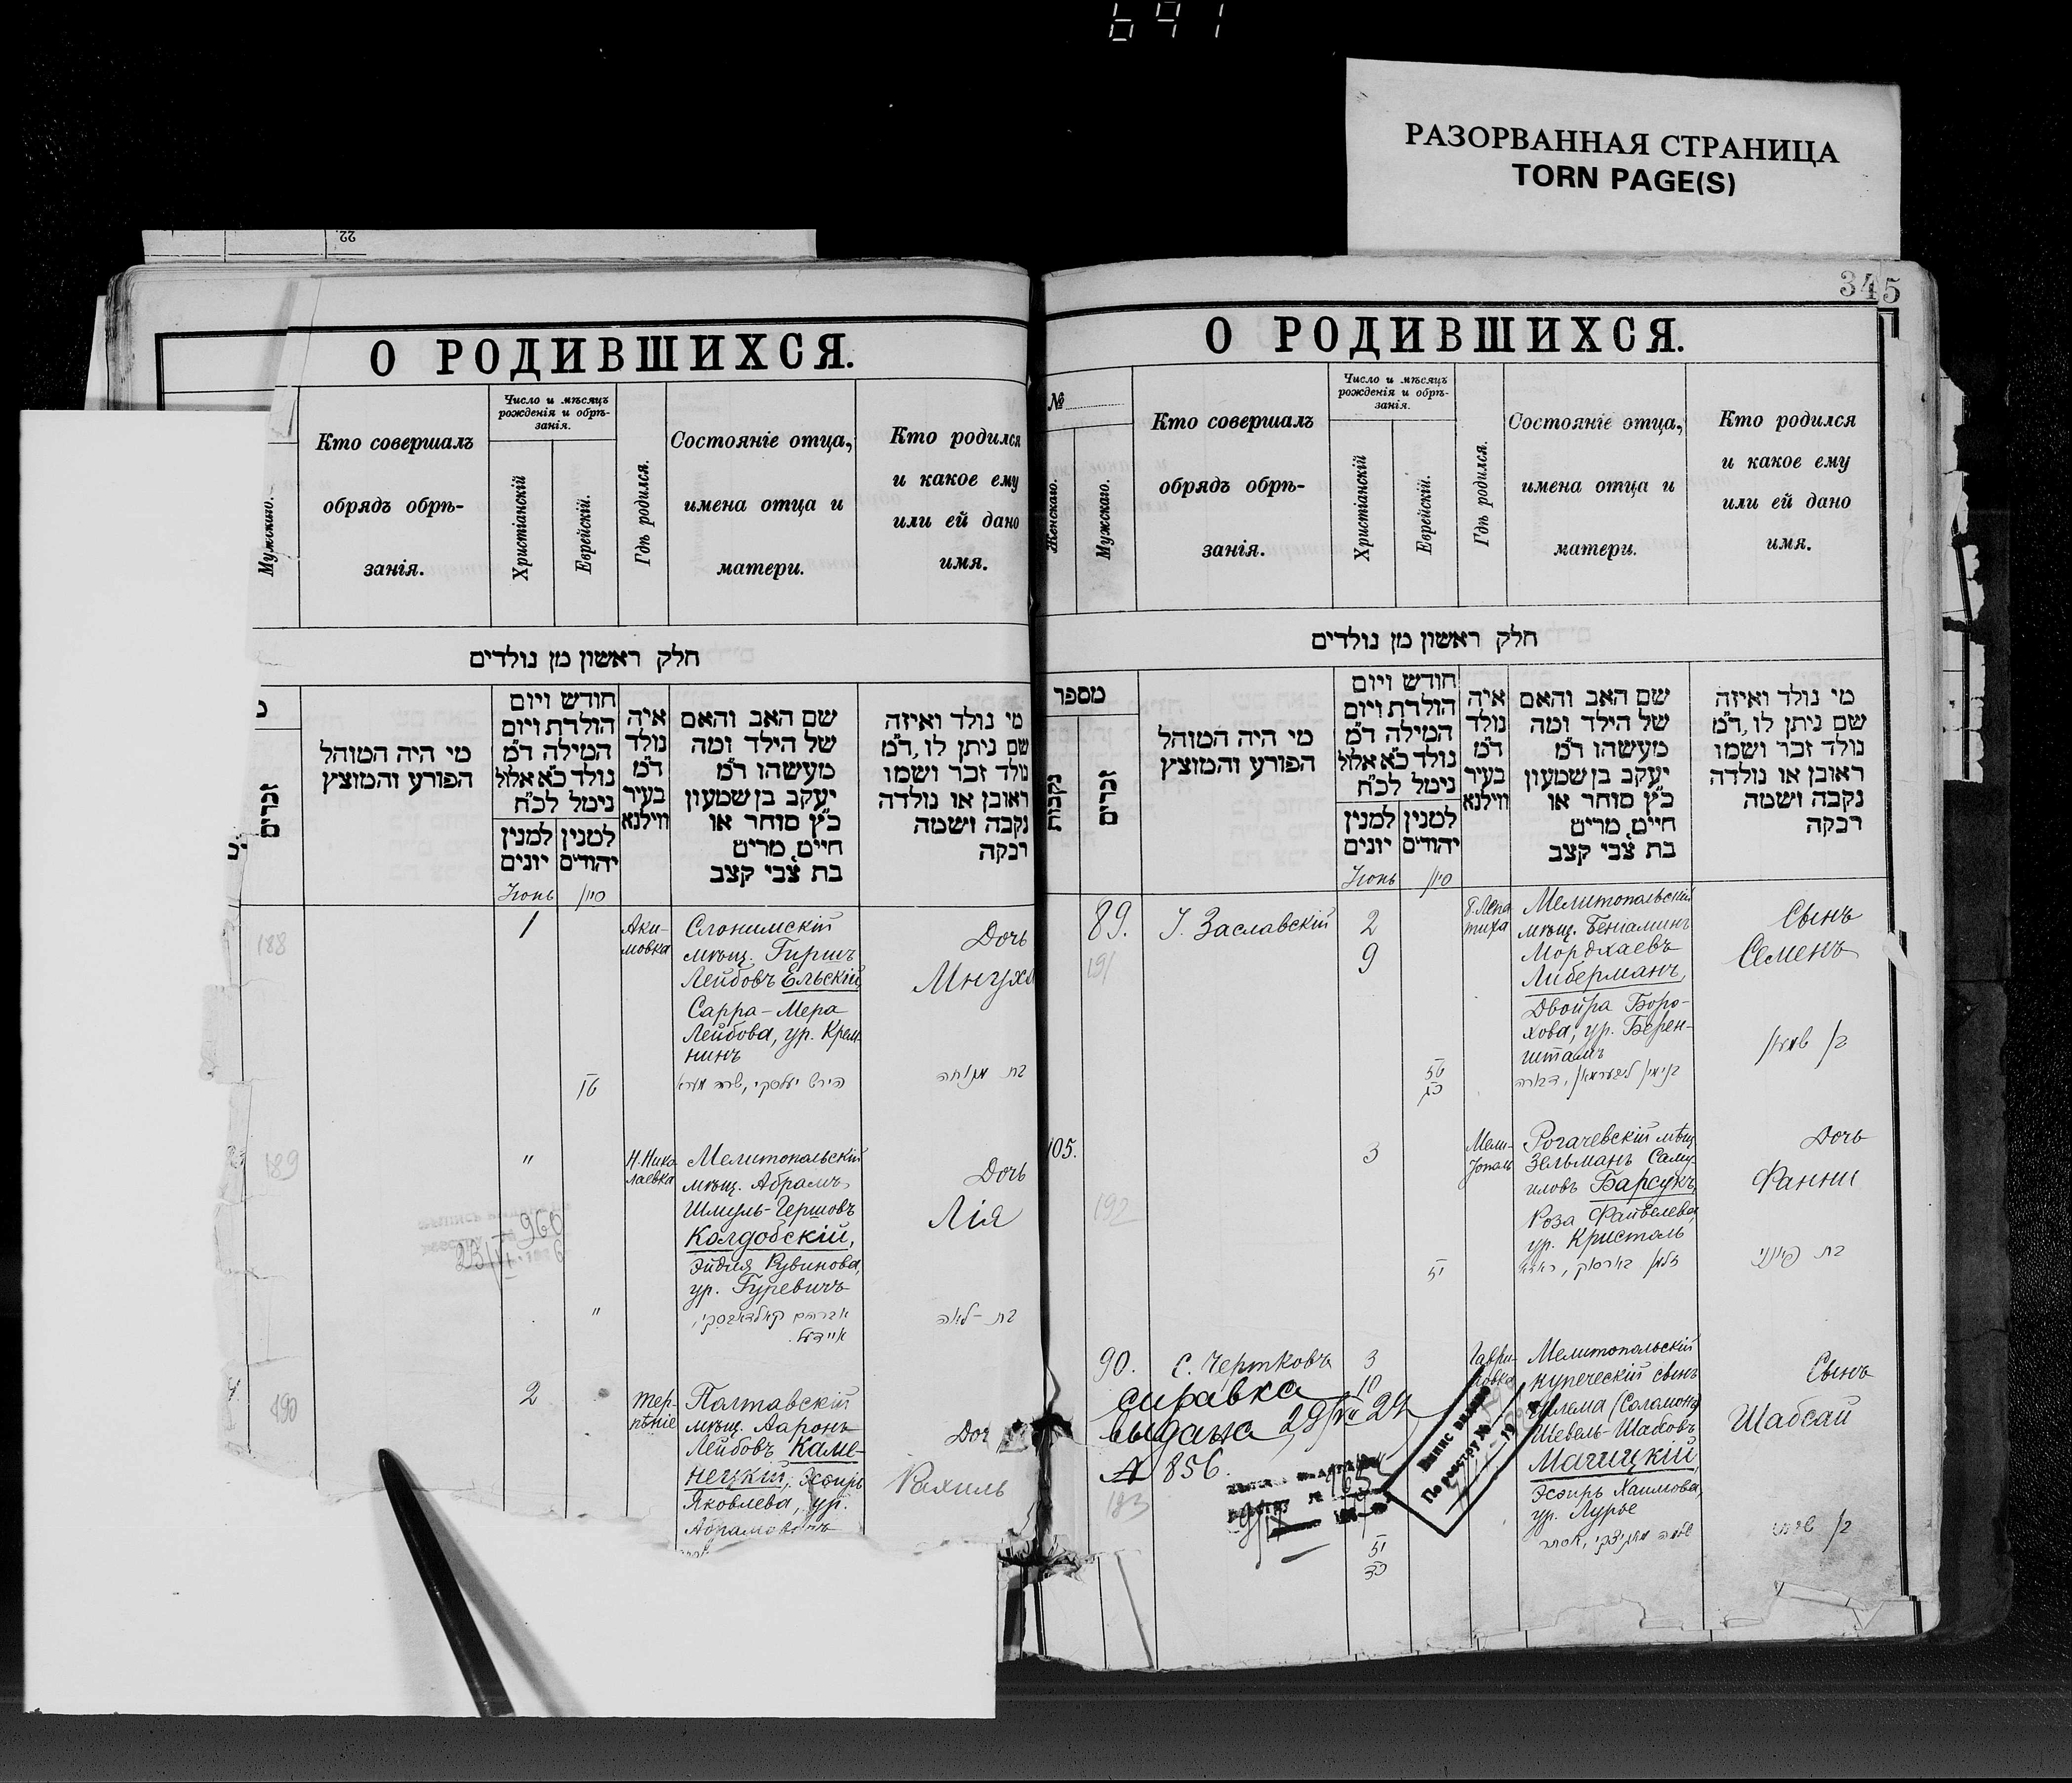 691
РАЗОРВАННАЯ СТРАНИЦА
TORN PAGE(S)
22.
О РОДИВШИХСЯ.
Мужскаго.
Кто совершалъ
обрядъ обрѣ-
занія.
Число и мѣсяцъ
рожденія и обрѣ-
занія.
Христіанскій
Еврейскій.
Гдѣ родился.
Состояніе отца,
имена отца и
матери.
Кто родился
и какое ему
или ей дано
имя.
חלק ראשון מן נולדים
זכרים
מי היה המוהל
הפורע והמוצץ
חודש ויום
הולדת ויום
המילה ד״מ
נולד כ״א אלול
נימל לכ״ח
למנין
יונים
למנין
יהודים
איה
נולד
ד״מ
בעיר
ווילנא
שם האב והאם
של הילד ומה
מעשהו ד״מ
יעקב בן שמעון
כ״ץ סוחר או
חייט, מרים
בת צבי קצב
מי נולד ואיזה
שם ניתן לו, ד״מ
נולד זכר ושמו
ראובן או נולדה
נקבה ושמה
רבקה
Іюнь
סיון
188
1
Аки-
мовка
Слонимскій
мѣщ. Гиршъ
Лейбовъ Ельскій,
Сарра-Мера
Лейбова, ур. Крем-
нинъ
Дочь
Мнуха
טז
הירש יעלסקי, שרה מערא
בת מנוחה
189
"
Н. Нико-
лаевка
Мелитопольскій
мѣщ. Абрамъ
Шмуль-Гершовъ
Колдобскій,
Эйдля Рувинова,
ур. Гуревичъ
Дочь
Лія
"
אברהם קאלדאבסקי,
איידעל
בת לאה
190
2
Тер-
пѣніе
Полтавскій
мѣщ. Ааронъ
Лейбовъ Каме-
нецкій, Эсѳирь
Яковлева, ур.
Абрамовичъ
Доч
Рахиль
345
О РОДИВШИХСЯ.
№
Женскаго.
Мужскаго.
Кто совершалъ
обрядъ обрѣ-
занія.
Число и мѣсяцъ
рожденія и обрѣ-
занія.
Христіанскій
Еврейскій.
Гдѣ родился.
Состояніе отца,
имена отца и
матери.
Кто родился
и какое ему
или ей дано
имя.
חלק ראשון מן נולדים
מספר
נקבות
זכרים
מי היה המוהל
הפורע והמוצץ
חודש ויום
הולדת ויום
המילה ד״מ
נולד כ״א אלול
נימל לכ״ח
למנין
יונים
למנין
יהודים
איה
נולד
ד״מ
בעיר
ווילנא
שם האב והאם
של הילד ומה
מעשהו ד״מ
יעקב בן שמעון
כ״ץ סוחר או
חייט, מרים
בת צבי קצב
מי נולד ואיזה
שם ניתן לו, ד״מ
נולד זכר ושמו
ראובן או נולדה
נקבה ושמה
רבקה
Іюнь
סיון
89.
191
І. Заславскій
2
9
Б. Лепа-
тиха
Мелитопольскій
мѣщ. Беніаминъ
Мордхаевъ
Либерманъ,
Двойра Боро-
хова, ур. Берен-
штамъ
Сынъ
Семенъ
בנימין ליבערמאן, דבורה
בן שמעון
105.
192
3
Мели-
тополь
Рогачевскій мѣщ.
Зельманъ Саму-
иловъ Барсукъ,
Роза Файвелева,
ур. Кристаль
Дочь
Фанни
זלמן בארסוק, ראזא
בת פייני
90.
С. Чертковъ
3
10
Гаври-
ловка
Мелитопольскій
купеческій сынъ
Шлема (Соломонъ)
Шевель-Шабовъ
Мачицкій,
Эсѳирь Хаимова,
ур. Лурье
Сынъ
Шабсай
справка
выдана 29/VII 29
№ 856
По реестру №
שלמה מאציצקי, אסתר
בן שבתי